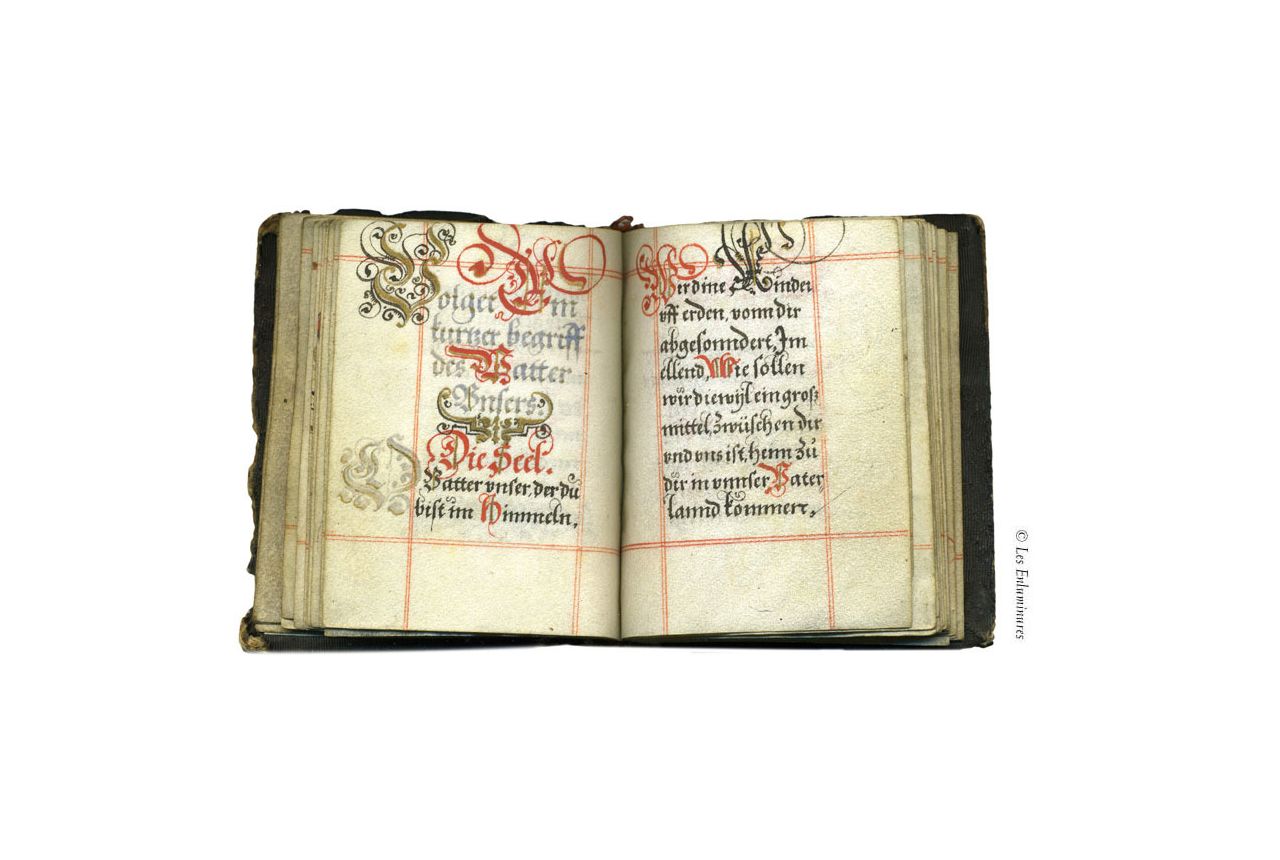 Volget Ein
kurtzer begriff
des Vatter
Vnsers:
Die Seel.
Vatter vnser, der dů
bist im Himmeln,
Wir dine Kinder
vff erden, vonn dir
abgesonndert, Im
ellend, Wie söllen
wir diewyl ein groß
mittel, zwüschen dir
vnd vns ist, heim zů
dir in vnnser Vater,
lannd kommen,
© Les Enluminures